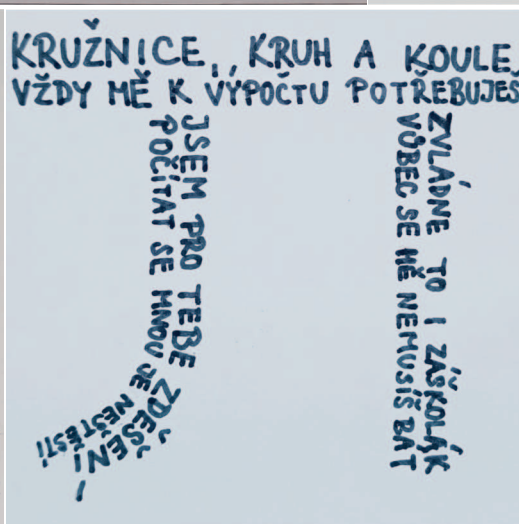 KRUŽNICE, KRUH A KOULE,
VŽDY MĚ K VÝPOČTU POTŘEBUJEŠ
JSEM PRO TEBE ZDĚŠENÍ
POČÍTAT SE MNOU JE NEŠTĚSTÍ
ZVLÁDNE TO I ZÁŠKOLÁK
VŮBEC SE MĚ NEMUSÍŠ BÁT